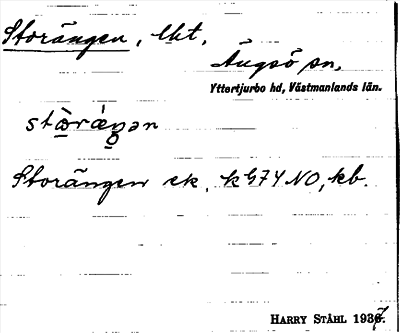 Storängen, lht,
Ängsö sn,
Yttertjurbo hd, Västmanlands län.
Storängen ek, kb.
HARRY STÅHL 1937.